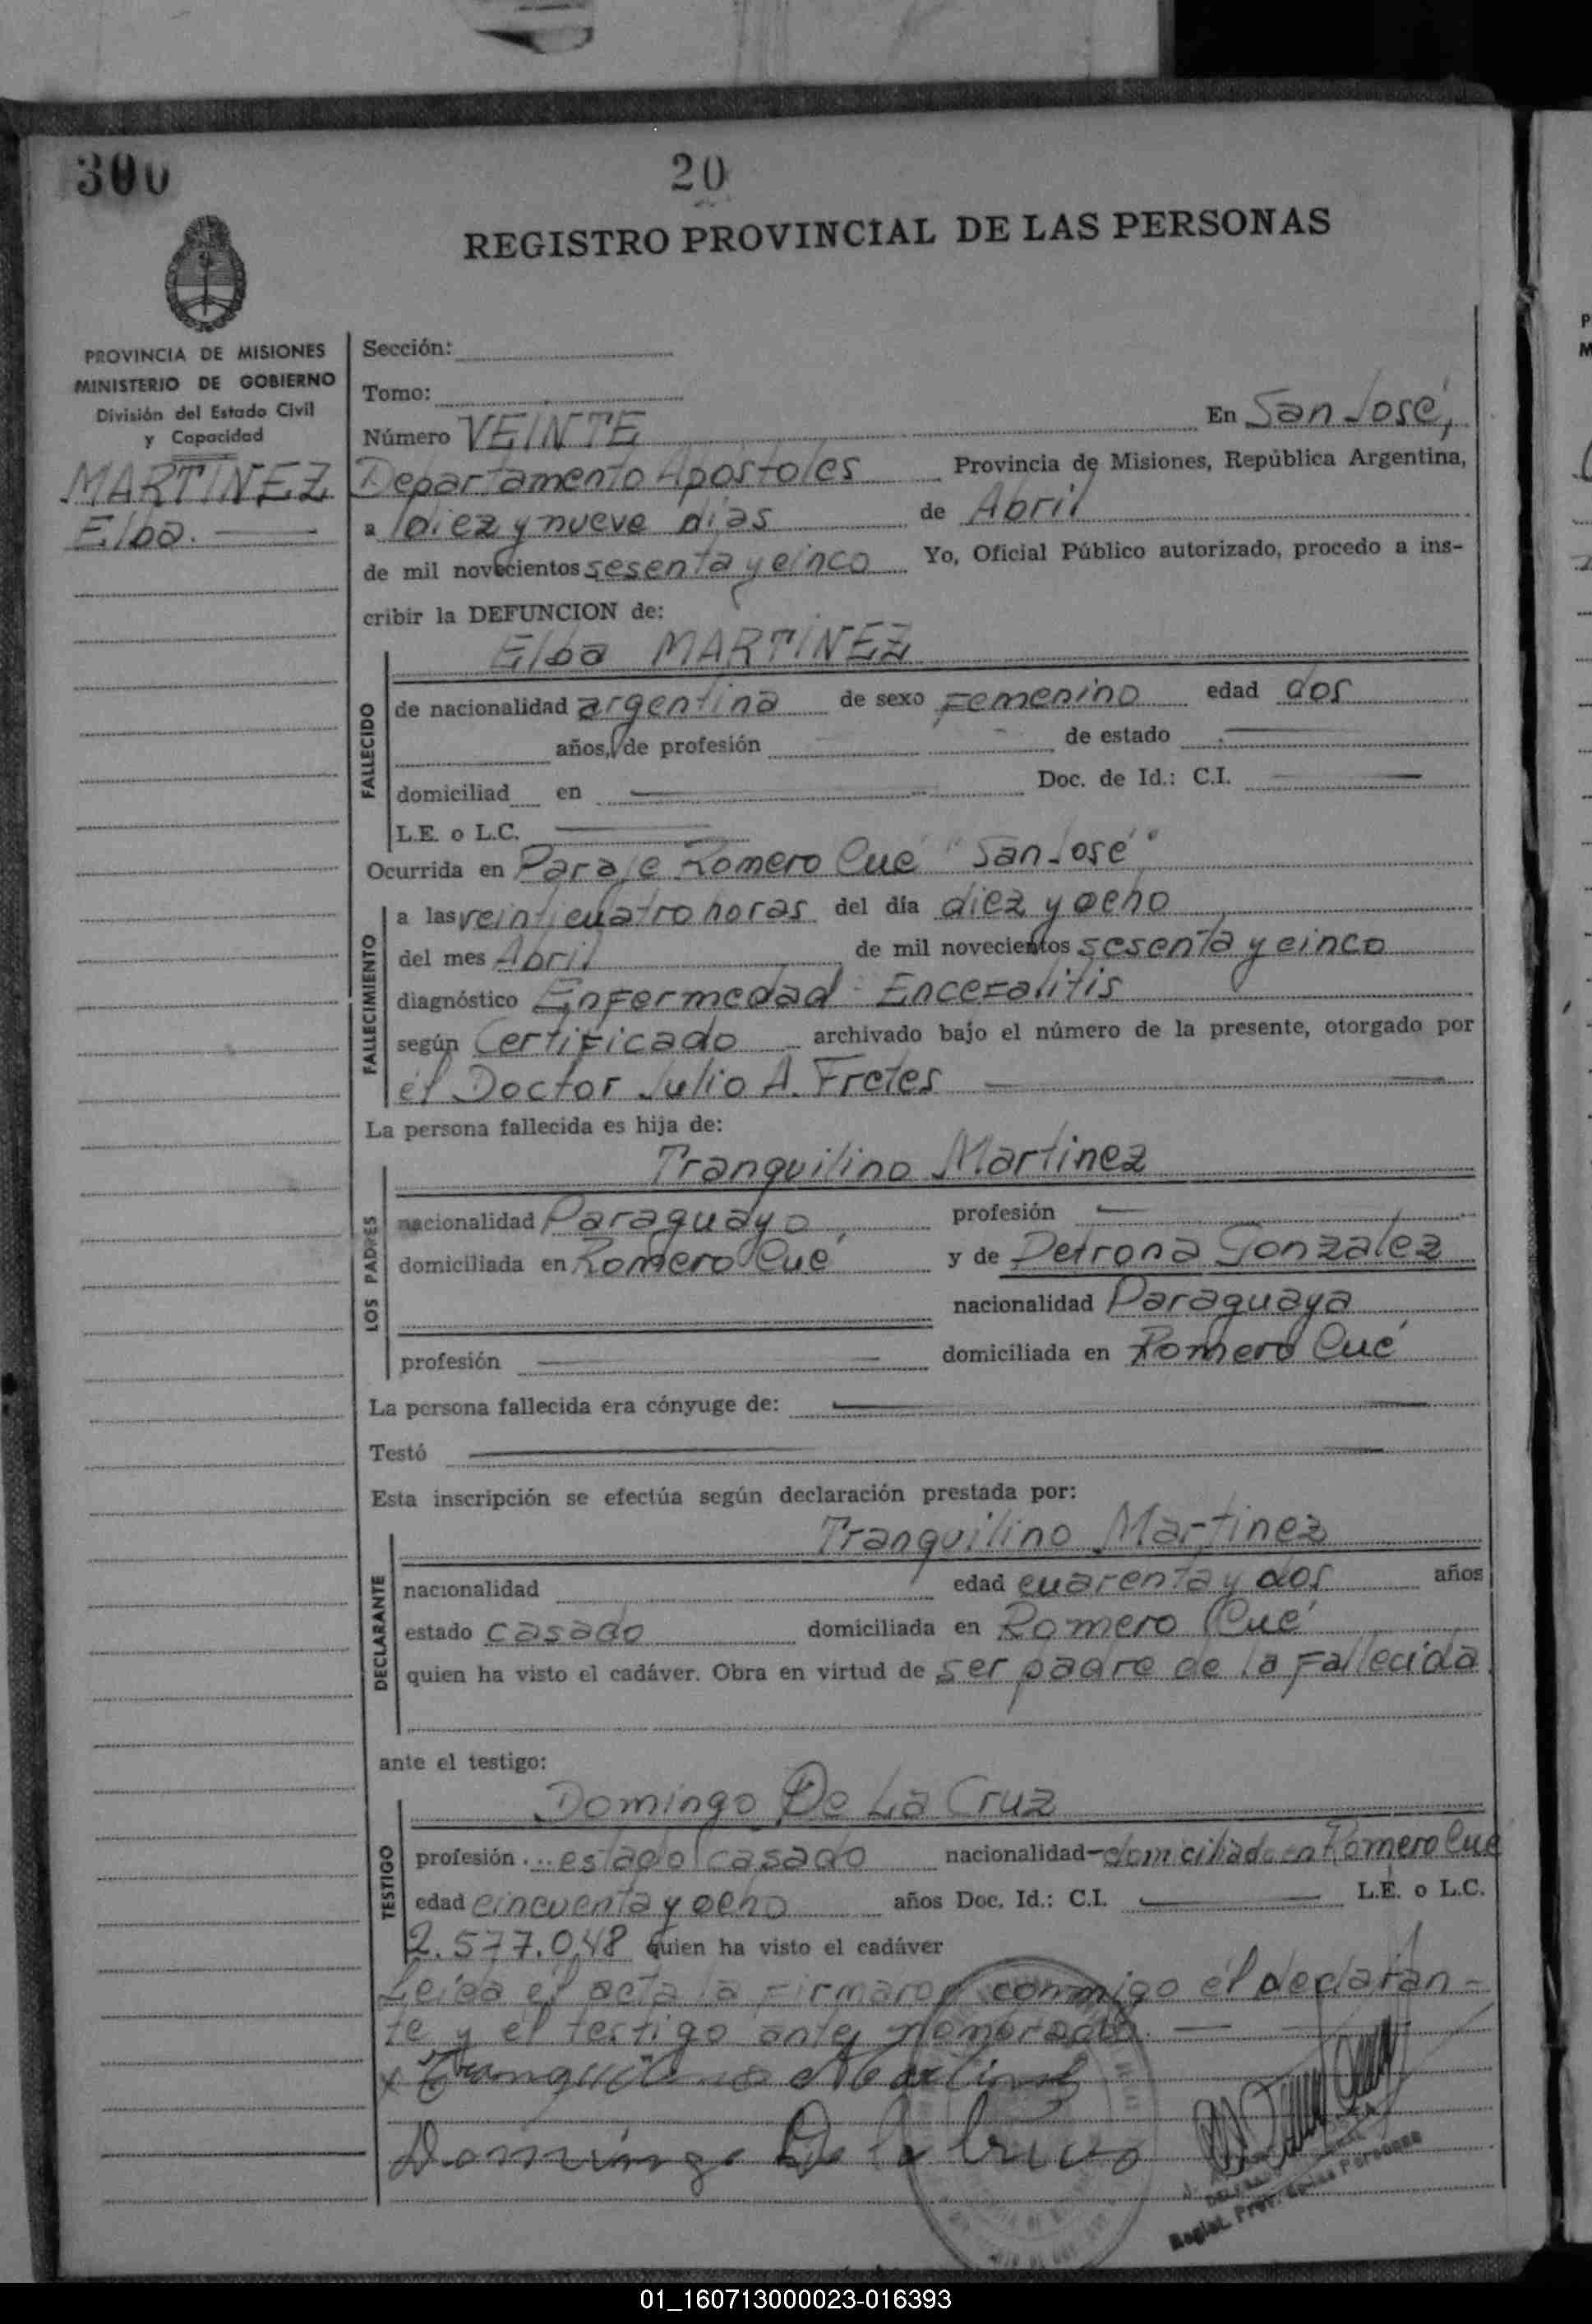 300
20
REGISTRO PROVINCIAL DE LAS PERSONAS
PROVINCIA DE MISIONES
MINISTERIO DE GOBIERNO
División del Estado Civil
y Capacidad
MARTINEZ
Elba.
Sección:
Tomo:
Número VEINTE En San José,
Departamento Apóstoles Provincia de Misiones, República Argentina,
a diez y nueve dias de Abril
de mil novecientos sesenta y cinco Yo, Oficial Público autorizado, procedo a ins-
cribir la DEFUNCION de:
Elba MARTINEZ
FALLECIDO
de nacionalidad argentina de sexo Femenino edad dos
años, de profesión de estado
domiciliad en Doc. de Id.: C.I.
L.E. o L.C.
Ocurrida en Paraje Romero Cué "San José"
FALLECIMIENTO
a las veinticuatro horas del día diez y ocho
del mes Abril de mil novecientos sesenta y cinco
diagnóstico Enfermedad - Encefalitis
según Certificado archivado bajo el número de la presente, otorgado por
el Doctor Julio A. Fretes
La persona fallecida es hija de:
Tranquilino Martinez
LOS PADRES
nacionalidad Paraguayo, profesión
domiciliada en Romero Cué y de Petrona Gonzalez
nacionalidad Paraguaya
profesión domiciliada en Romero Cué
La persona fallecida era cónyuge de:
Testó
Esta inscripción se efectúa según declaración prestada por:
Tranquilino Martinez
DECLARANTE
nacionalidad edad cuarenta y dos años
estado casado domiciliada en Romero Cué
quien ha visto el cadáver. Obra en virtud de ser padre de la fallecida
ante el testigo:
Domingo De La Cruz
TESTIGO
profesión estado casado nacionalidad-domiciliado en Romero Cué
edad cincuenta y ocho años Doc. Id.: C.I. L.E. o L.C.
2.577.048 quien ha visto el cadáver
Leida el acta la firmaron conmigo el declaran-
te y el testigo antes nombrado.
x Tranquilino Martinez
Domingo De la Cruz
Regist. Prov. de las Personas
01_160713000023-016393